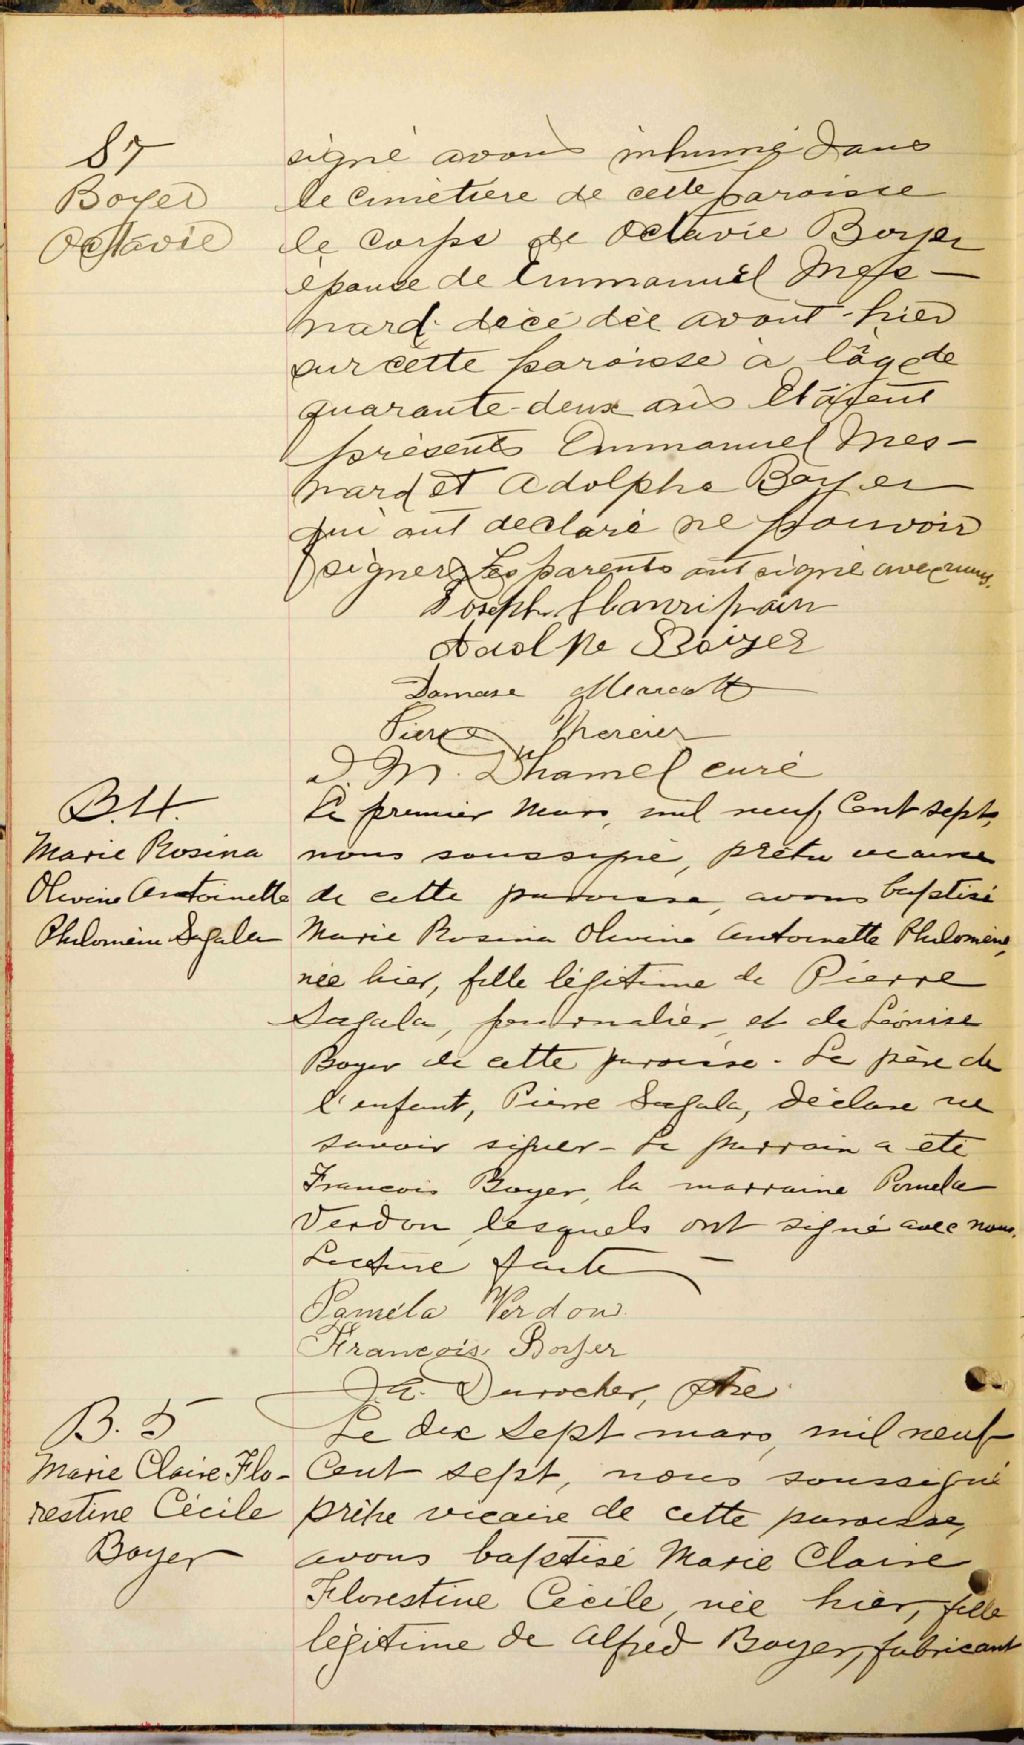 S 7
Boyer
Octavie
signé avons inhumé dans
le cimetière de cette paroisse
le corps de Octavie Boyer
épouse de Emmanuel Mes-
nard décédée avant-hier
sur cette paroisse à l'âge de
quarante-deux ans Etaient
présents Emmanuel Mes-
nard et Adolphe Boyer
qui ont declaré ne pouvoir
signer Les parents ont signé avec nous.
Joseph
Adolphe Boiyer
Damase Marcotte
Pierre Mercier
J. M. Dhamel curé
B. 4.
Marie Rosina
Olivine Antoinette
Philomène Lagala
Le premier Mars, mil neuf Cent sept,
nous soussigné, prêtre vicaire
de cette paroisse, avons baptisé
Marie Rosina Olivine Antoinette Philomène,
née hier, fille légitime de Pierre
Lagala, journalier, et de Léonise
Boyer de cette paroisse. Le père de
l'enfant, Pierre Lagala, déclare ne
savoir signer - Le parrain a été
Francois Boyer, la marraine Pomela
Verdon, lesquels ont signé avec nous.
Lecture faite
Paméla Verdon
François Boyer
J. E. Durocher, ptre
B. 5
Marie Claire Flo-
restine Cécile
Boyer
Le dix sept mars, mil neuf
Cent sept, nous soussigné
prêtre vicaire de cette paroisse,
avons baptisé Marie Claire
Florestine Cécile, née hier, fille
légitime de Alfred Boyer, fabricant